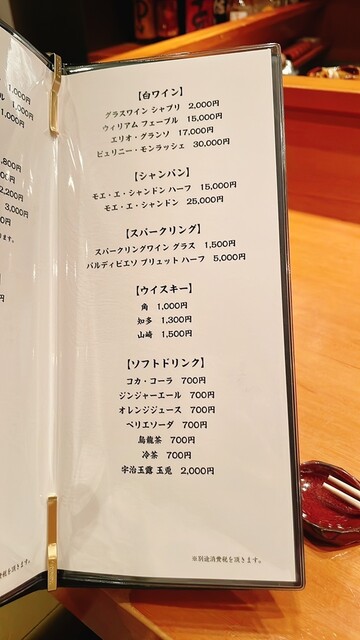 1,000円
1,000円
1,000円
,800円
2,200円
3,000円
【白ワイン】
グラスワイン シャブリ 2,000円
ウィリアム フェーブル 15,000円
エリオ・グランソ 17,000円
ピュリニー・モンラッシェ 30,000円
【シャンパン】
モエ・エ・シャンドン ハーフ 15,000円
モエ・エ・シャンドン 25,000円
【スパークリング】
スパークリングワイン グラス 1,500円
バルディビエソ ブリュット ハーフ 5,000円
【ウイスキー】
角 1,000円
知多 1,300円
山崎 1,500円
【ソフトドリンク】
コカ・コーラ 700円
ジンジャーエール 700円
オレンジジュース 700円
ペリエソーダ 700円
烏龍茶 700円
冷茶 700円
宇治玉露 玉兎 2,000円
※別途消費税を頂きます。